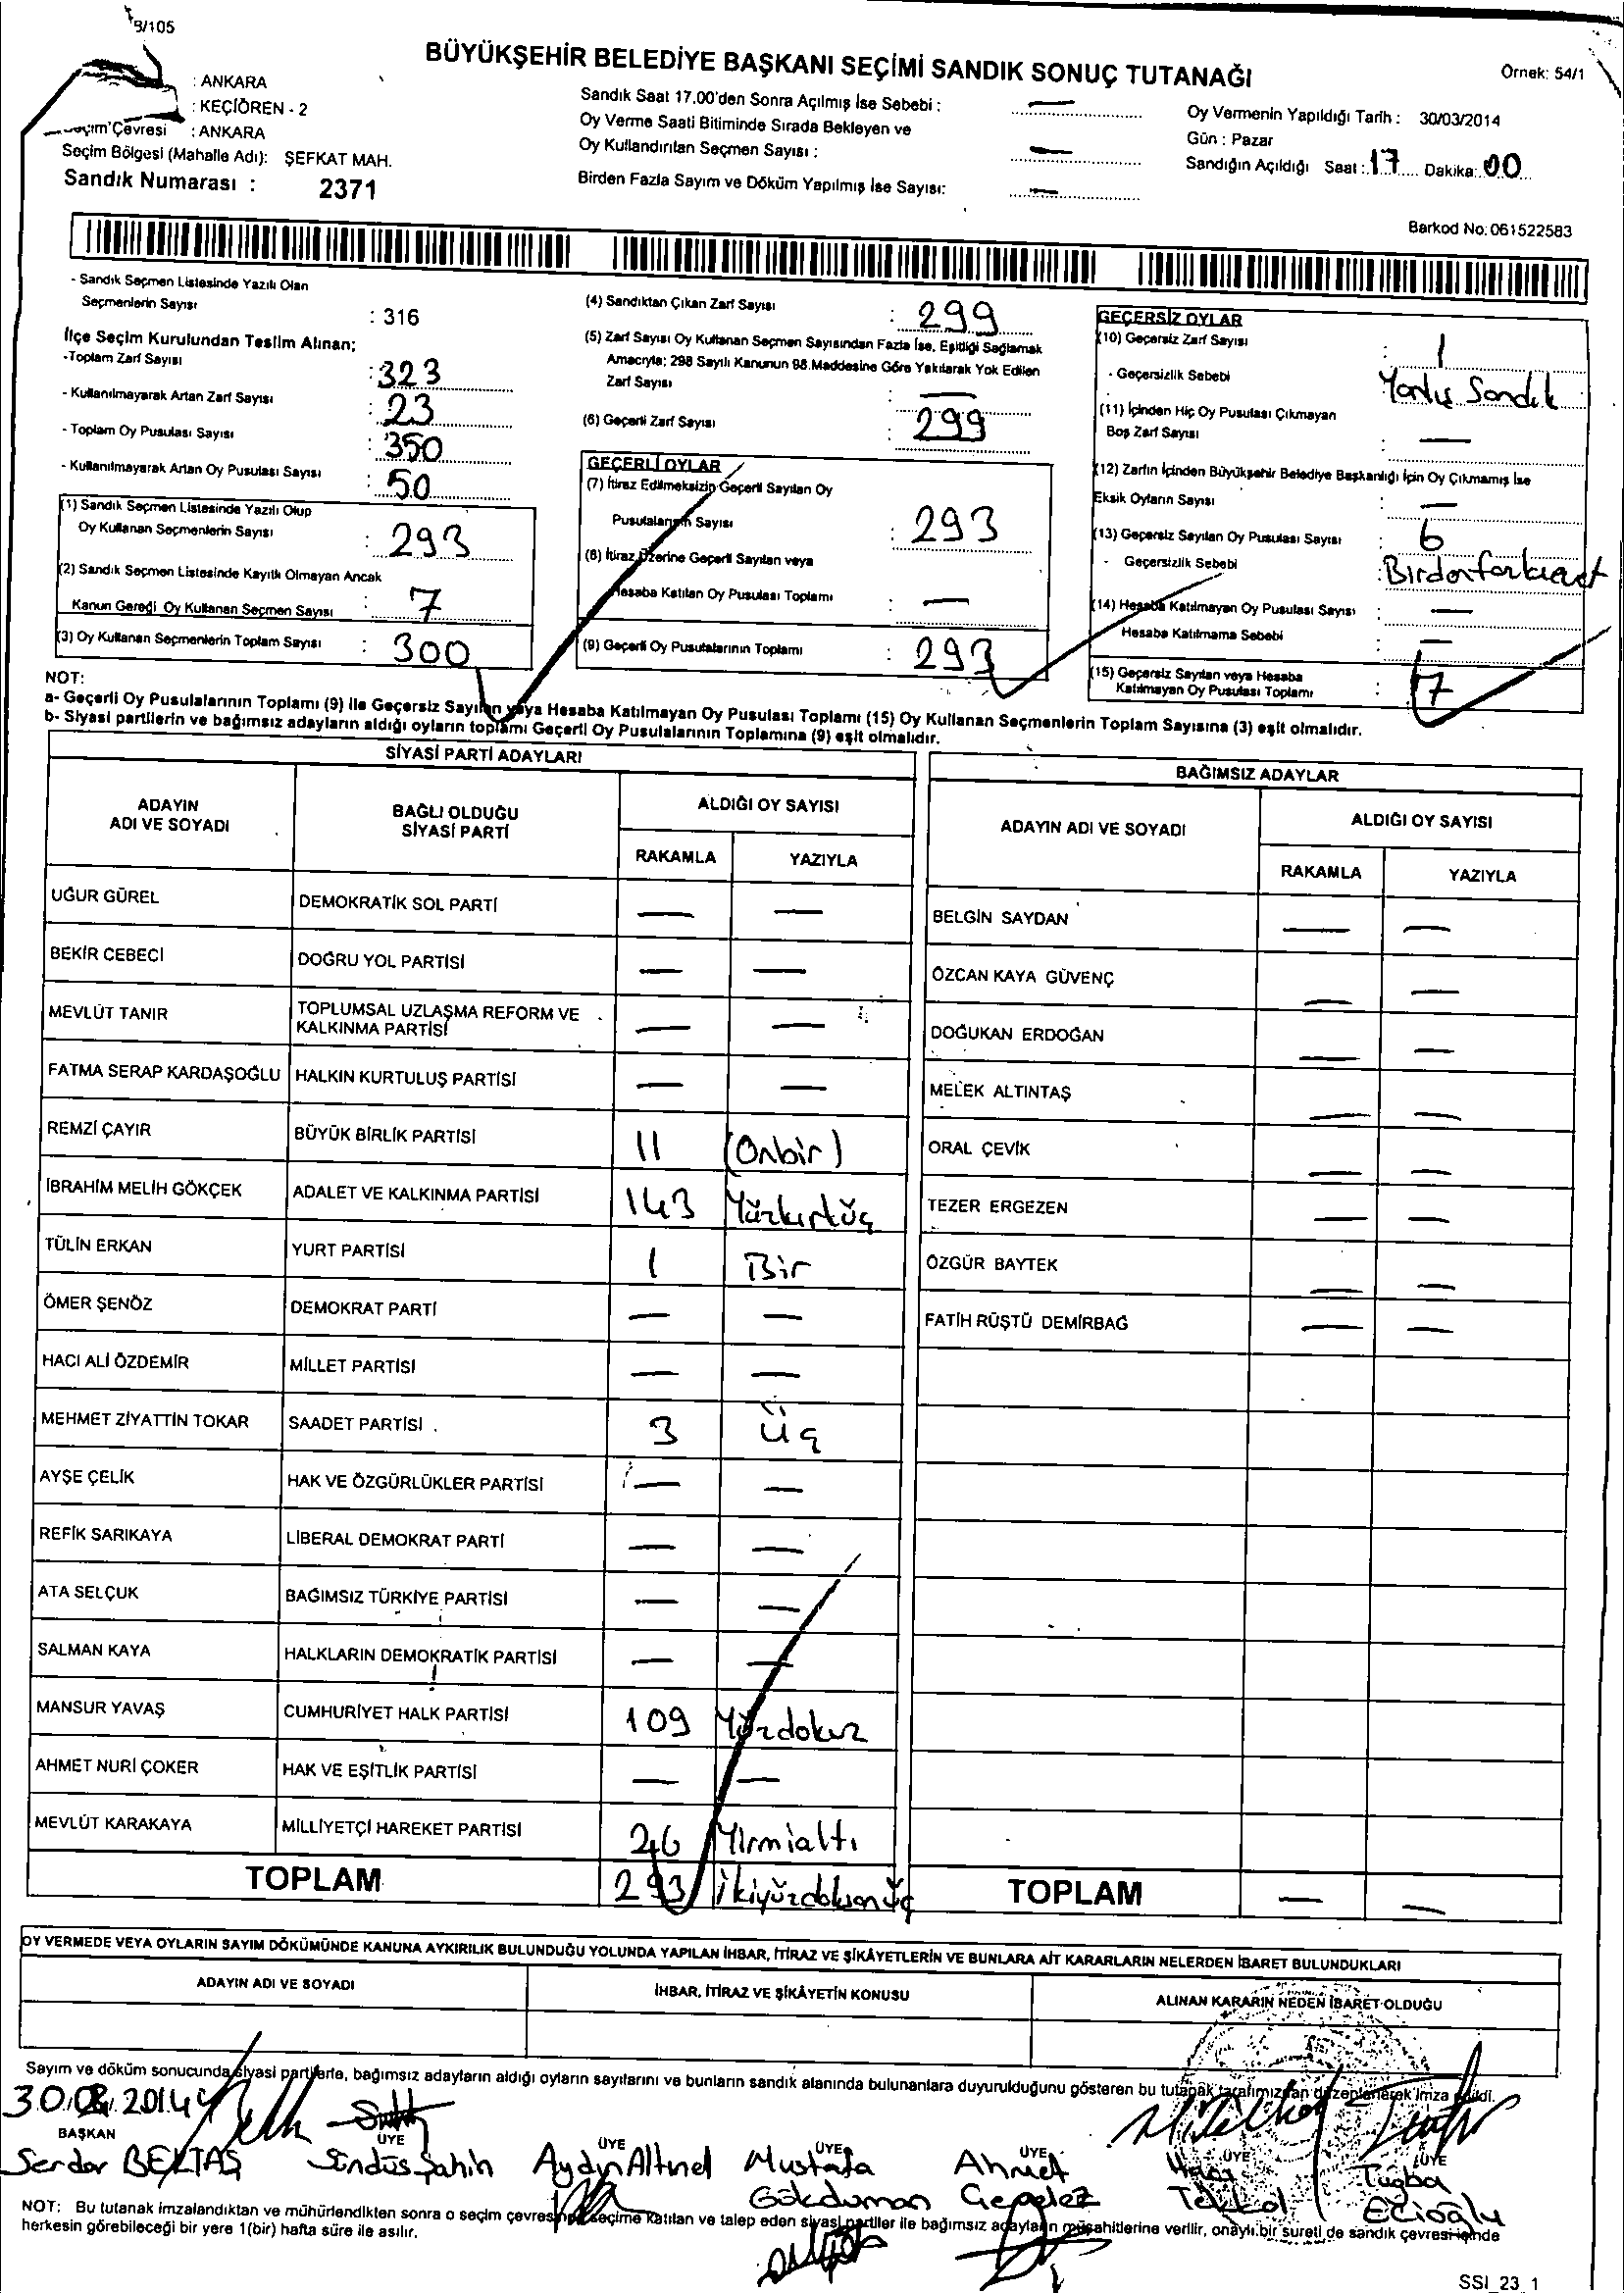 9/105
BÜYÜKŞEHİR BELEDİYE BAŞKANI SEÇİMİ SANDIK SONUÇ TUTANAĞI
Örnek: 54/1
: ANKARA
: KEÇİÖREN - 2
Seçim Çevresi : ANKARA
Seçim Bölgesi (Mahalle Adı): ŞEFKAT MAH.
Sandık Numarası : 2371
Sandık Saat 17.00'den Sonra Açılmış İse Sebebi : —
Oy Verme Saati Bitiminde Sırada Bekleyen ve
Oy Kullandırılan Seçmen Sayısı : —
Birden Fazla Sayım ve Döküm Yapılmış İse Sayısı: —
Oy Vermenin Yapıldığı Tarih : 30/03/2014
Gün : Pazar
Sandığın Açıldığı Saat : 17 Dakika: 00
Barkod No: 061522583
- Sandık Seçmen Listesinde Yazılı Olan
Seçmenlerin Sayısı : 316
İlçe Seçim Kurulundan Teslim Alınan;
-Toplam Zarf Sayısı : 323
- Kullanılmayarak Artan Zarf Sayısı : 23
- Toplam Oy Pusulası Sayısı : 350
- Kullanılmayarak Artan Oy Pusulası Sayısı : 50
(1) Sandık Seçmen Listesinde Yazılı Olup
Oy Kullanan Seçmenlerin Sayısı : 293
(2) Sandık Seçmen Listesinde Kayıtlı Olmayan Ancak
Kanun Gereği Oy Kullanan Seçmen Sayısı : 7
(3) Oy Kullanan Seçmenlerin Toplam Sayısı : 300
(4) Sandıktan Çıkan Zarf Sayısı : 299
(5) Zarf Sayısı Oy Kullanan Seçmen Sayısından Fazla İse, Eşitliği Sağlamak
Amacıyla; 298 Sayılı Kanunun 98.Maddesine Göre Yakılarak Yok Edilen
Zarf Sayısı : —
(6) Geçerli Zarf Sayısı : 299
GEÇERLİ OYLAR
(7) İtiraz Edilmeksizin Geçerli Sayılan Oy
Pusulalarının Sayısı : 293
(8) İtiraz Üzerine Geçerli Sayılan veya
Hesaba Katılan Oy Pusulası Toplamı : —
(9) Geçerli Oy Pusulalarının Toplamı : 293
GEÇERSİZ OYLAR
(10) Geçersiz Zarf Sayısı : 1
- Geçersizlik Sebebi : Yanlış Sandık
(11) İçinden Hiç Oy Pusulası Çıkmayan
Boş Zarf Sayısı : —
(12) Zarfın İçinden Büyükşehir Belediye Başkanlığı İçin Oy Çıkmamış İse
Eksik Oyların Sayısı : —
(13) Geçersiz Sayılan Oy Pusulası Sayısı : 6
- Geçersizlik Sebebi :
(14) Hesaba Katılmayan Oy Pusulası Sayısı : —
Hesaba Katılmama Sebebi : —
(15) Geçersiz Sayılan veya Hesaba
Katılmayan Oy Pusulası Toplamı : 7
NOT:
a- Geçerli Oy Pusulalarının Toplamı (9) ile Geçersiz Sayılan veya Hesaba Katılmayan Oy Pusulası Toplamı (15) Oy Kullanan Seçmenlerin Toplam Sayısına (3) eşit olmalıdır.
b- Siyasi partilerin ve bağımsız adayların aldığı oyların toplamı Geçerli Oy Pusulalarının Toplamına (9) eşit olmalıdır.
SİYASİ PARTİ ADAYLARI
ADAYIN ADI VE SOYADI
BAĞLI OLDUĞU SİYASİ PARTİ
ALDIĞI OY SAYISI
RAKAMLA YAZIYLA
UĞUR GÜREL DEMOKRATİK SOL PARTİ — —
BEKİR CEBECİ DOĞRU YOL PARTİSİ — —
MEVLÜT TANIR TOPLUMSAL UZLAŞMA REFORM VE KALKINMA PARTİSİ — —
FATMA SERAP KARDAŞOĞLU HALKIN KURTULUŞ PARTİSİ — —
REMZİ ÇAYIR BÜYÜK BİRLİK PARTİSİ 11 (Onbir)
İBRAHİM MELİH GÖKÇEK ADALET VE KALKINMA PARTİSİ 143 Yüzkırküç
TÜLİN ERKAN YURT PARTİSİ 1 Bir
ÖMER ŞENÖZ DEMOKRAT PARTİ — —
HACI ALİ ÖZDEMİR MİLLET PARTİSİ — —
MEHMET ZİYATTİN TOKAR SAADET PARTİSİ 3 Üç
AYŞE ÇELİK HAK VE ÖZGÜRLÜKLER PARTİSİ — —
REFİK SARIKAYA LİBERAL DEMOKRAT PARTİ — —
ATA SELÇUK BAĞIMSIZ TÜRKİYE PARTİSİ — —
SALMAN KAYA HALKLARIN DEMOKRATİK PARTİSİ — —
MANSUR YAVAŞ CUMHURİYET HALK PARTİSİ 109 Yüzdokuz
AHMET NURİ ÇOKER HAK VE EŞİTLİK PARTİSİ — —
MEVLÜT KARAKAYA MİLLİYETÇİ HAREKET PARTİSİ 26 Yirmialtı
TOPLAM 293 ikiyüzdoksanüç
BAĞIMSIZ ADAYLAR
ADAYIN ADI VE SOYADI
ALDIĞI OY SAYISI
RAKAMLA YAZIYLA
BELGİN SAYDAN — —
ÖZCAN KAYA GÜVENÇ — —
DOĞUKAN ERDOĞAN — —
MELEK ALTINTAŞ — —
ORAL ÇEVİK — —
TEZER ERGEZEN — —
ÖZGÜR BAYTEK — —
FATİH RÜŞTÜ DEMİRBAĞ — —
TOPLAM — —
OY VERMEDE VEYA OYLARIN SAYIM DÖKÜMÜNDE KANUNA AYKIRILIK BULUNDUĞU YOLUNDA YAPILAN İHBAR, İTİRAZ VE ŞİKÂYETLERİN VE BUNLARA AİT KARARLARIN NELERDEN İBARET BULUNDUKLARI
ADAYIN ADI VE SOYADI İHBAR, İTİRAZ VE ŞİKÂYETİN KONUSU ALINAN KARARIN NEDEN İBARET OLDUĞU
Sayım ve döküm sonucunda siyasi partilerle, bağımsız adayların aldığı oyların sayılarını ve bunların sandık alanında bulunanlara duyurulduğunu gösteren bu tutanak tarafımızdan düzenlenerek imza edildi.
30.03.2014
BAŞKAN ÜYE ÜYE ÜYE ÜYE ÜYE ÜYE
Serdar BEKTAŞ Sündüs Şahin Aydın Altınel Mustafa Gökduman Ahmet Tuğba
NOT: Bu tutanak imzalandıktan ve mühürlendikten sonra o seçim çevresinde seçime katılan ve talep eden siyasi partiler ile bağımsız adayların müşahitlerine verilir, onaylı bir sureti de sandık çevresi içinde
herkesin görebileceği bir yere 1(bir) hafta süre ile asılır.
SSI_23_1